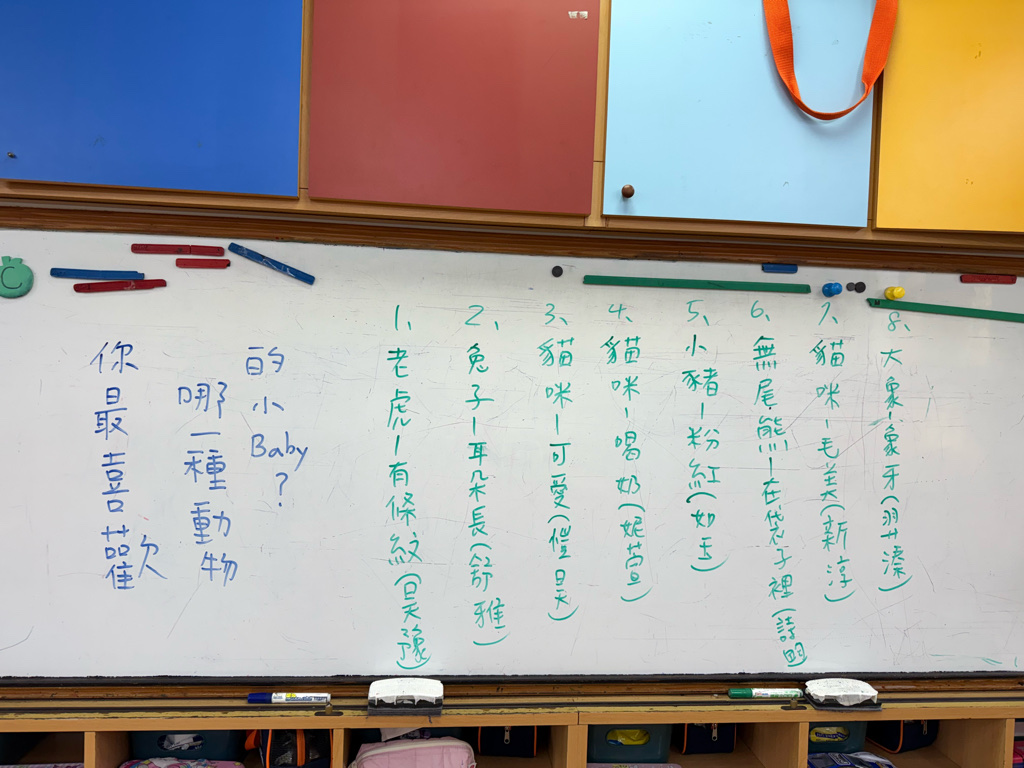 你最喜歡
哪一種動物
的小Baby?
1、老虎-有條紋(昊豫)
2、兔子-耳朵長(舒雅)
3、貓咪-可愛(愷昊)
4、貓咪-喝奶(妮萱)
5、小豬-粉紅(如玉)
6、無尾熊-在袋子裡(詩明)
7、貓咪-毛美(新淳)
8、大象-象牙(羽蓁)
C